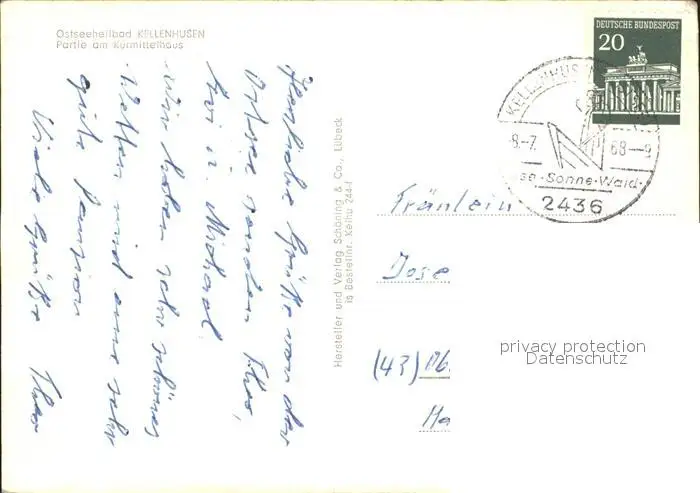 Ostseeheilbad KELLENHUSEN
Partie am Kurmittelhaus
Herzliche Grüße von der
Ostsee senden Theo,
u. Michael.
Wir haben sehr schönes
Wetter und eine sehr
gute Pension
Viele Grüße Theo
Hersteller und Verlag Schöning & Co., Lübeck
Bestellnr. Kelhu 244-I
DEUTSCHE BUNDESPOST
20
KELLENHUSEN
8.-7. 68--9
Sonne·Wald·
2436
Fräulein
Jose
(43)
Ha
privacy protection
Datenschutz